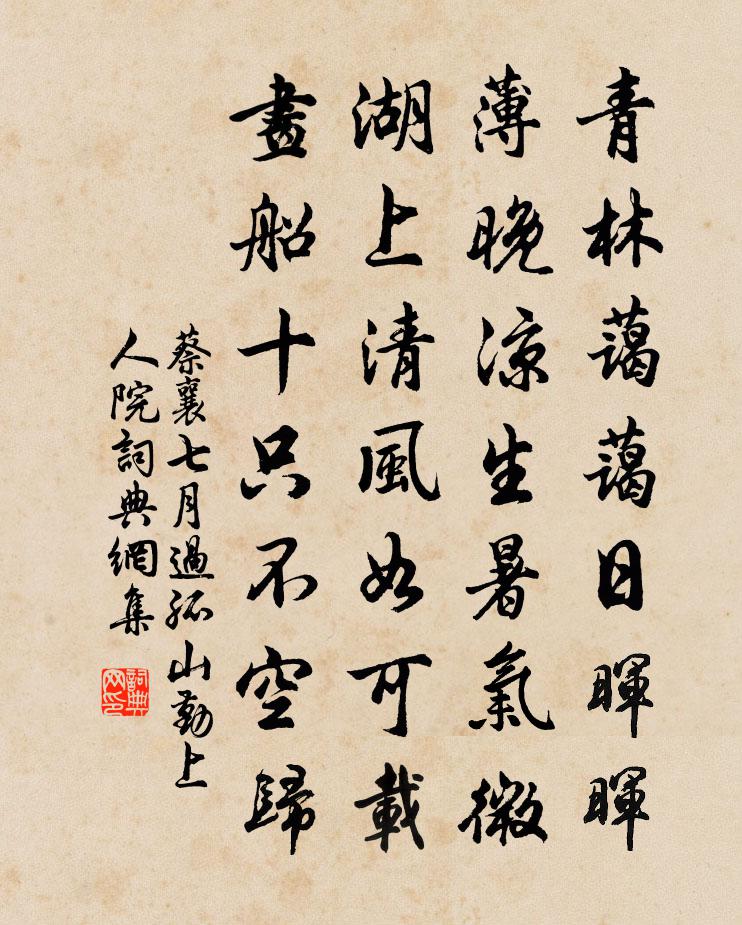 青林藹藹日暉暉
薄晚涼生暑氣微
湖上清風如可載
畫船十只不空歸
蔡襄七月過孤山勤上
人院詞典網集
詞典網印